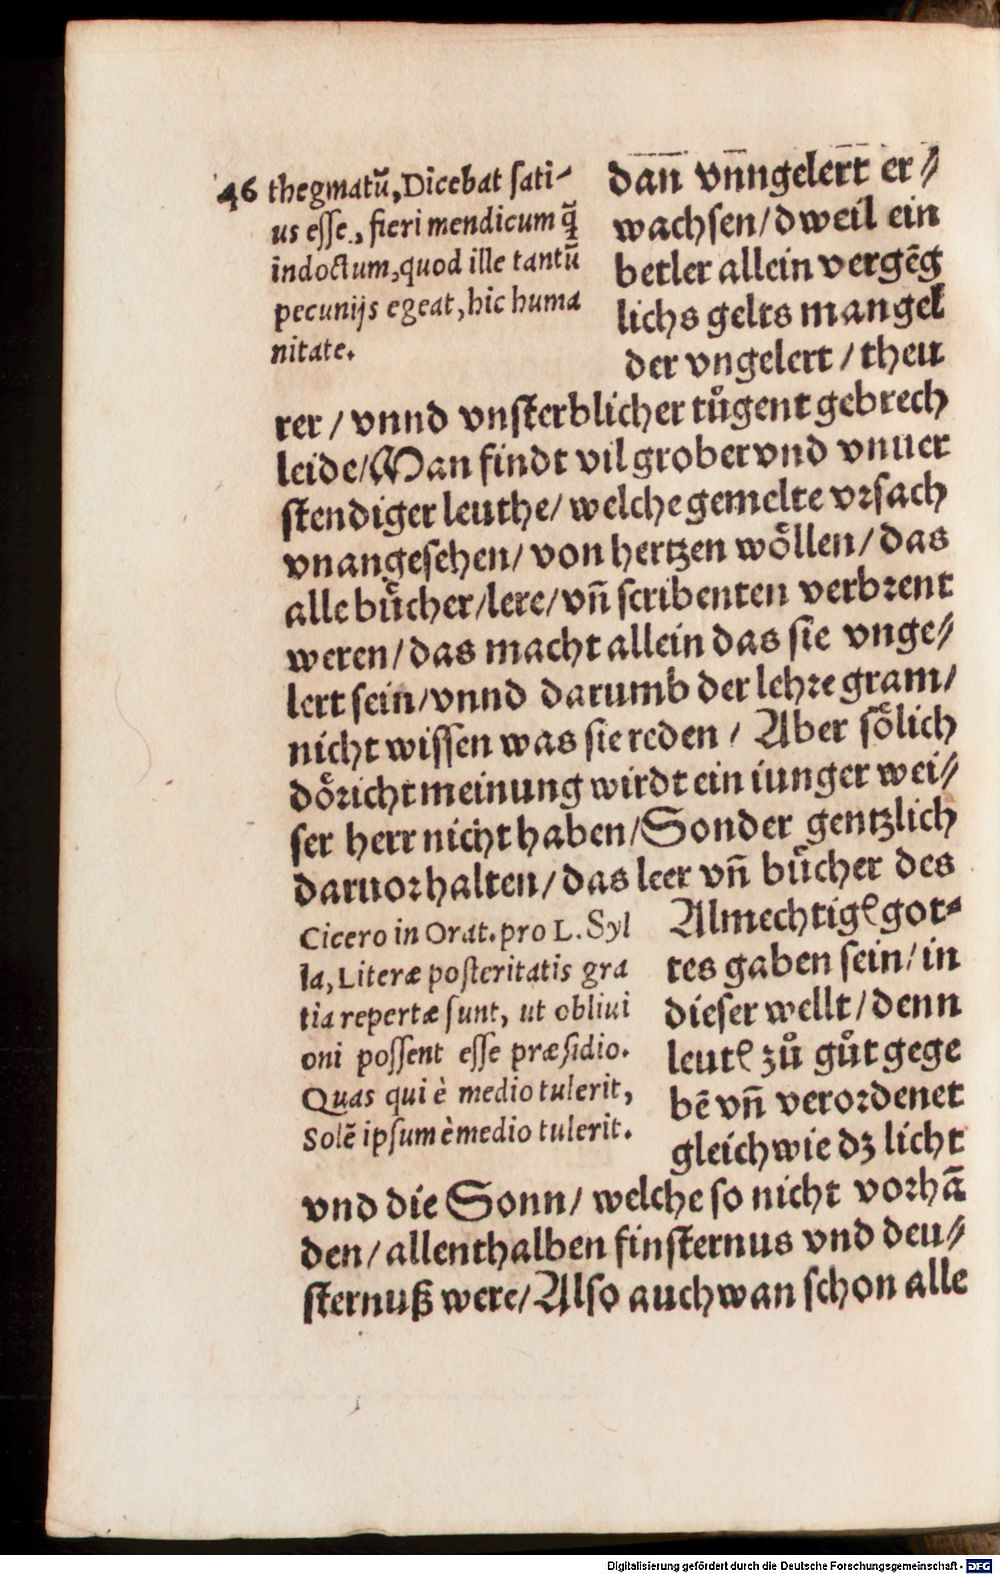 46 thegmatũ, Dicebat sati-
us esse, fieri mendicum q̃
indoctum, quod ille tantũ
pecunijs egeat, hic huma
nitate.
dan vnngelert er⸗
wachsen/ dweil ein
betler allein vergẽg
lichs gelts mangel
der vngelert / theu
rer / vnnd vnsterblicher tůgent gebrech
leide/ Man findt vil grober vnd vnuer
stendiger leuthe/ welche gemelte vrsach
vnangesehen/ von hertzen wöllen/ das
alle bücher/lere/ vñ scribenten verbrent
weren/ das macht allein das sie vnge⸗
lert sein/ vnnd darumb der lehre gram/
nicht wissen was sie reden / Aber sölich
döricht meinung wirdt ein iunger wei⸗
ser herr nicht haben/ Sonder gentzlich
daruor halten/ das leer vñ bücher des
Cicero in Orat. pro L. Syl
la, Literæ posteritatis gra
tia repertæ sunt, ut obliui
oni possent esse præsidio.
Quas qui è medio tulerit,
Solẽ ipsum è medio tulerit.
Almechtigꝭ got⸗
tes gaben sein/ in
dieser wellt/ denn
leutꝭ zů gůt gege
bẽ vñ verordenet
gleich wie dz licht
vnd die Sonn/ welche so nicht vorhã
den/ allenthalben finsternus vnd deu⸗
sternuß were/ Also auch wan schon alle
Digitalisierung gefördert durch die Deutsche Forschungsgemeinschaft - DFG